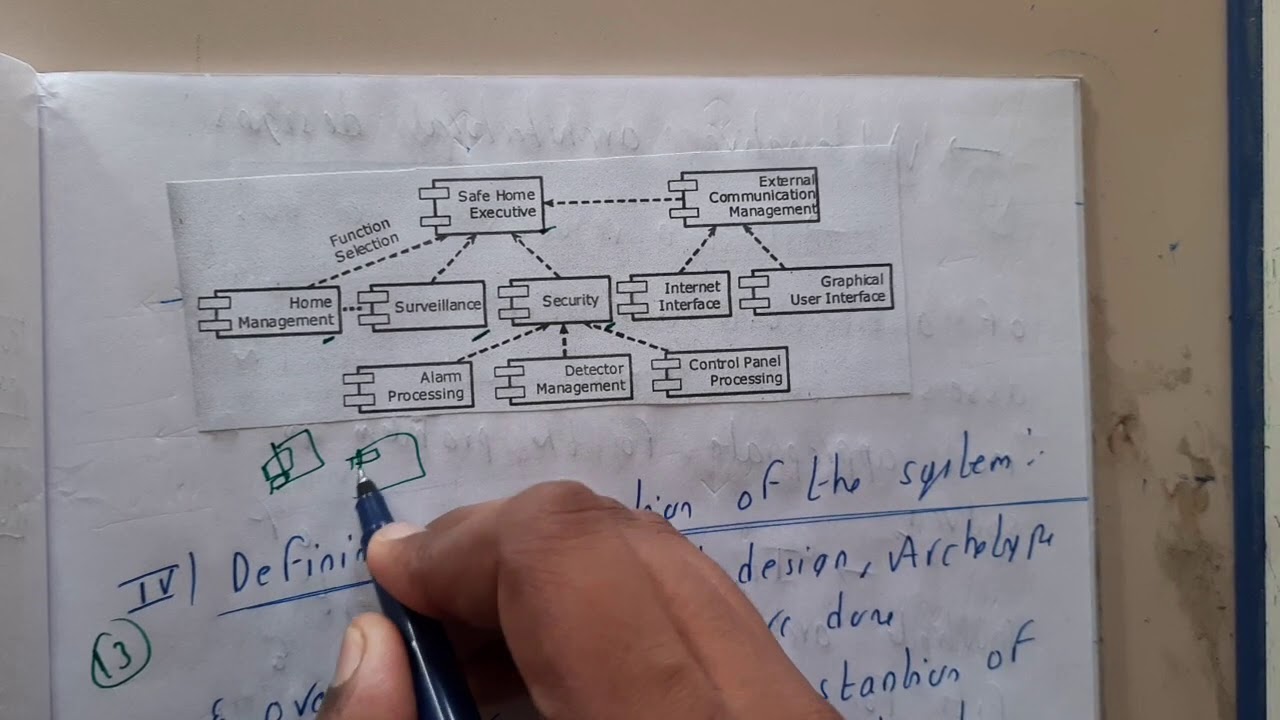 Safe Home
Executive
External
Communication
Management
Function
Selection
Home
Management
Surveillance
Security
Internet
Interface
Graphical
User Interface
Alarm
Processing
Detector
Management
Control Panel
Processing
IV) of the system:
design, Archetype
13 done
of